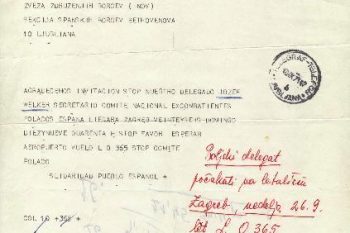 ZVEZA ZDRUZENJIH BORCEV (NOV)
SEKCIJA SPANSKIH BORCEV BETHOVENOVA
10 LJUBLJANA
AGRADECEMOS INVITACION STOP NUESTRO DELEGADO JOZEF
WELKER SECRETARIO COMITE NACIONAL EXCOMBATIENTES
POLACOS ESPANA LLEGARA ZAGREB VEINTESEXTO DOMINGO
DIEZYNUEVE CUARENTA STOP FAVOR ESPERAR
AEROPUERTO VUELO LO 365 STOP COMITE
POLACO
SOLIDARIDAD PUEBLO ESPANOL +
COL 10 +365 +
Poljski delegat
počakati na letališču
Zagreb, nedelja 26.9.
let L O 365